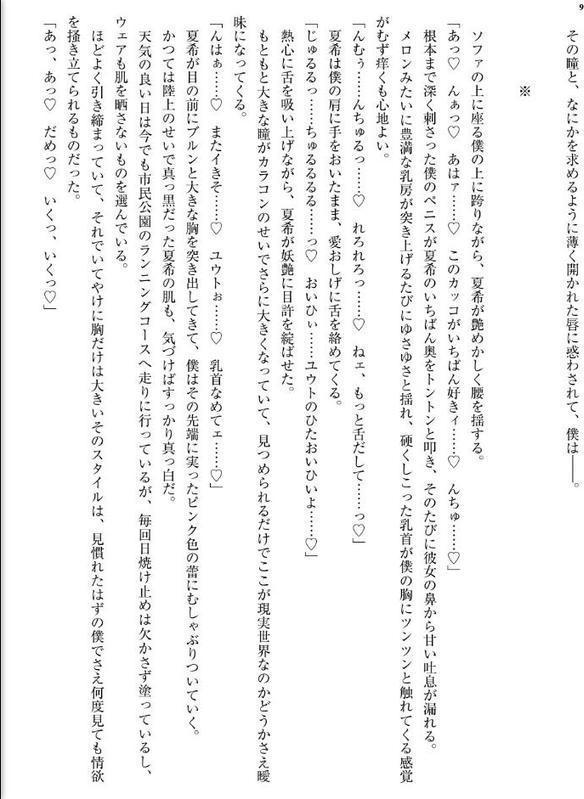 9
その瞳と、なにかを求めるように薄く開かれた唇に惑わされて、僕は――。
※
ソファの上に座る僕の上に跨りながら、夏希が艶めかしく腰を揺する。
「あっ♡　んぁっ♡　あはァ……♡　このカッコがいちばん好きィ……♡　んちゅ……♡」
根本まで深く刺さった僕のペニスが夏希のいちばん奥をトントンと叩き、そのたびに彼女の鼻から甘い吐息が漏れる。
メロンみたいに豊満な乳房が突き上げるたびにゆさゆさと揺れ、硬くしこった乳首が僕の胸にツンツンと触れてくる感覚
がむず痒くも心地よい。
「んむぅ……んちゅるっ……♡　れろれろっ……♡　ねェ、もっと舌だして……っ♡」
夏希は僕の肩に手をおいたまま、愛おしげに舌を絡めてくる。
「じゅるるっ……ちゅるるるる……っ♡　おいひぃ……ユウトのひたおいひいよ……♡」
熱心に舌を吸い上げながら、夏希が妖艶に目許を綻ばせた。
もともと大きな瞳がカラコンのせいでさらに大きくなっていて、見つめられるだけでここが現実世界なのかどうかさえ曖
昧になってくる。
「んはぁ……♡　またイきそ……♡　ユウトぉ……♡　乳首なめてェ……♡」
夏希が目の前にブルンと大きな胸を突き出してきて、僕はその先端に実ったピンク色の蕾にむしゃぶりついていく。
かつては陸上のせいで真っ黒だった夏希の肌も、気づけばすっかり真っ白だ。
天気の良い日は今でも市民公園のランニングコースへ走りに行っているが、毎回日焼け止めは欠かさず塗っているし、
ウェアも肌を晒さないものを選んでいる。
ほどよく引き締まっていて、それでいてやけに胸だけは大きいそのスタイルは、見慣れたはずの僕でさえ何度見ても情欲
を掻き立てられるものだった。
「あっ、あっ♡　だめっ♡　いくっ、いくっ♡」